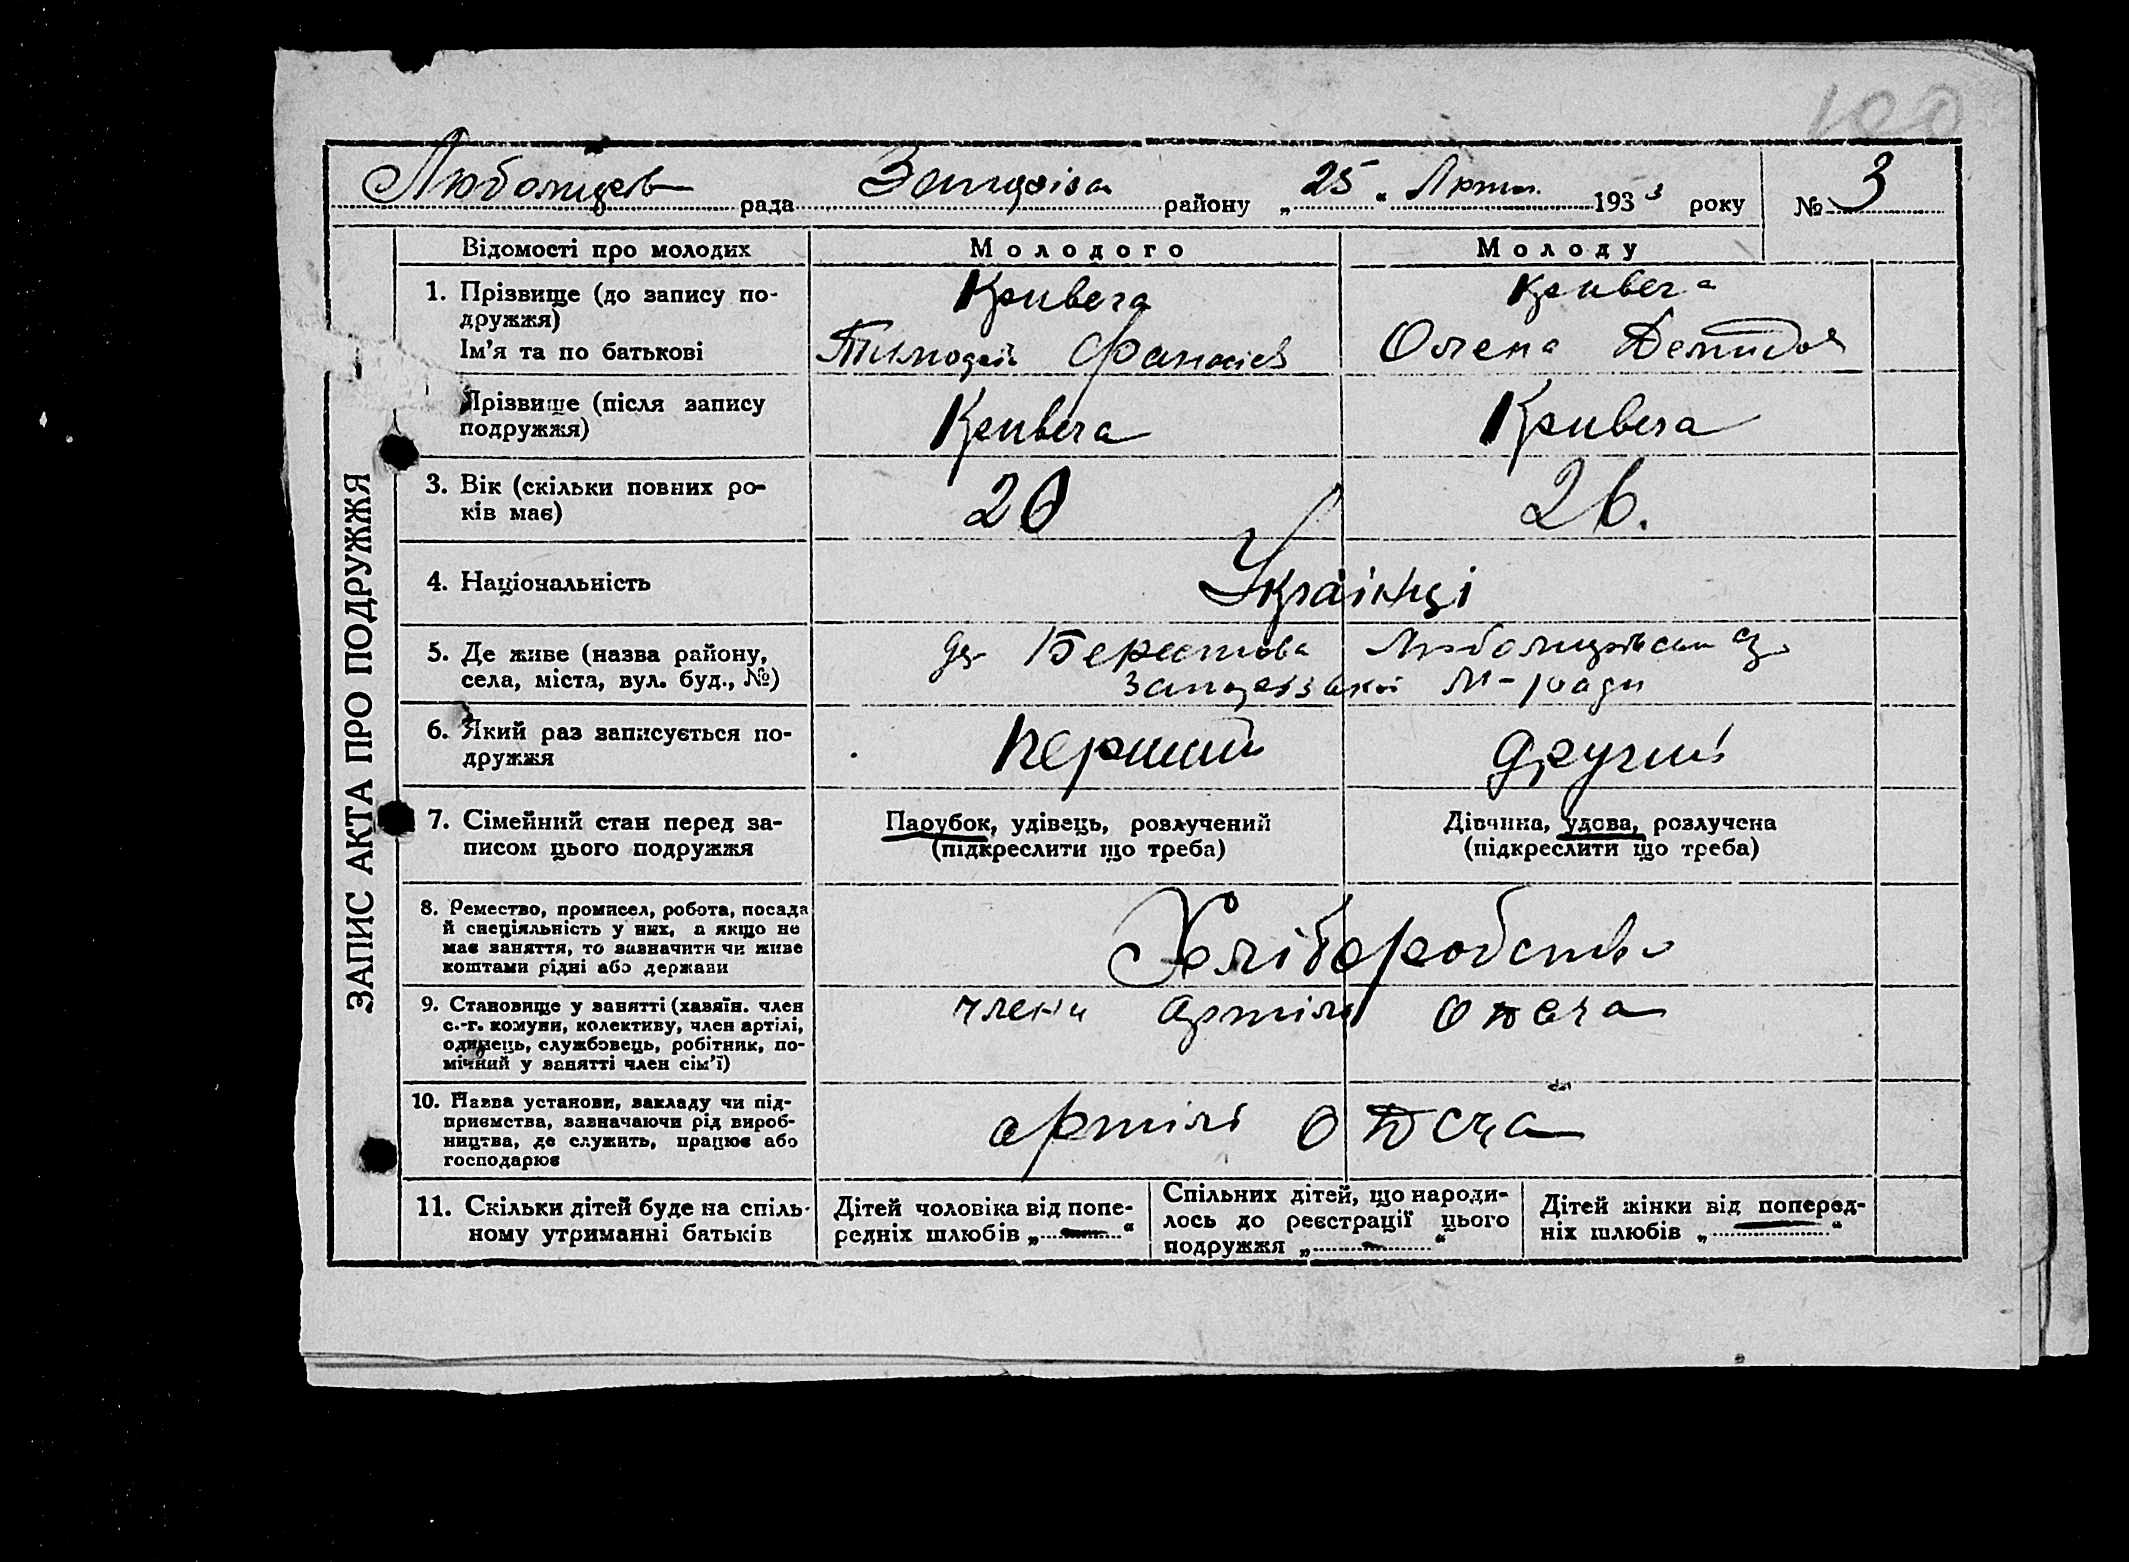 100
Любомирів рада району „25" Лютого 1933 року № 3
ЗАПИС АКТА ПРО ПОДРУЖЖЯ
Відомості про молодих Молодого Молоду
1. Прізвище (до запису по-
дружжя)
Кривега Кривега
Ім'я та по батькові
Тимофей Фанасієв Олена Демидов
Прізвище (після запису
подружжя)
Кривега Кривега
3. Вік (скільки повних ро-
ків має)
20 26.
4. Національність
Українці
5. Де живе (назва району,
села, міста, вул. буд., №)
Берестова
М-ради
6. Який раз записується по-
дружжя
перший другий
7. Сімейний стан перед за-
писом цього подружжя
Парубок, удівець, розлучений
(підкреслити що треба)
Дівчина, удова, розлучена
(підкреслити що треба)
8. Ремество, промисел, робота, посада
й спеціяльність у них, а якщо не
має заняття, то зазначити чи живе
коштами рідні або держави
Хліборобство
9. Становище у занятті (хазяїн. член
с.-г. комуни, колективу, член артілі,
одинець, службовець, робітник, по-
мічний у занятті член сім'ї)
члени артілі
10. Назва установи, закладу чи під-
приємства, зазначаючи рід вироб-
ництва, де служить, працює або
господарює
артілі
11. Скільки дітей буде на спіль-
ному утриманні батьків
Дітей чоловіка від попе-
редніх шлюбів „ — "
Спільних дітей, що народи-
лось до реєстрації цього
подружжя „ — "
Дітей жінки від поперед-
ніх шлюбів „ — "